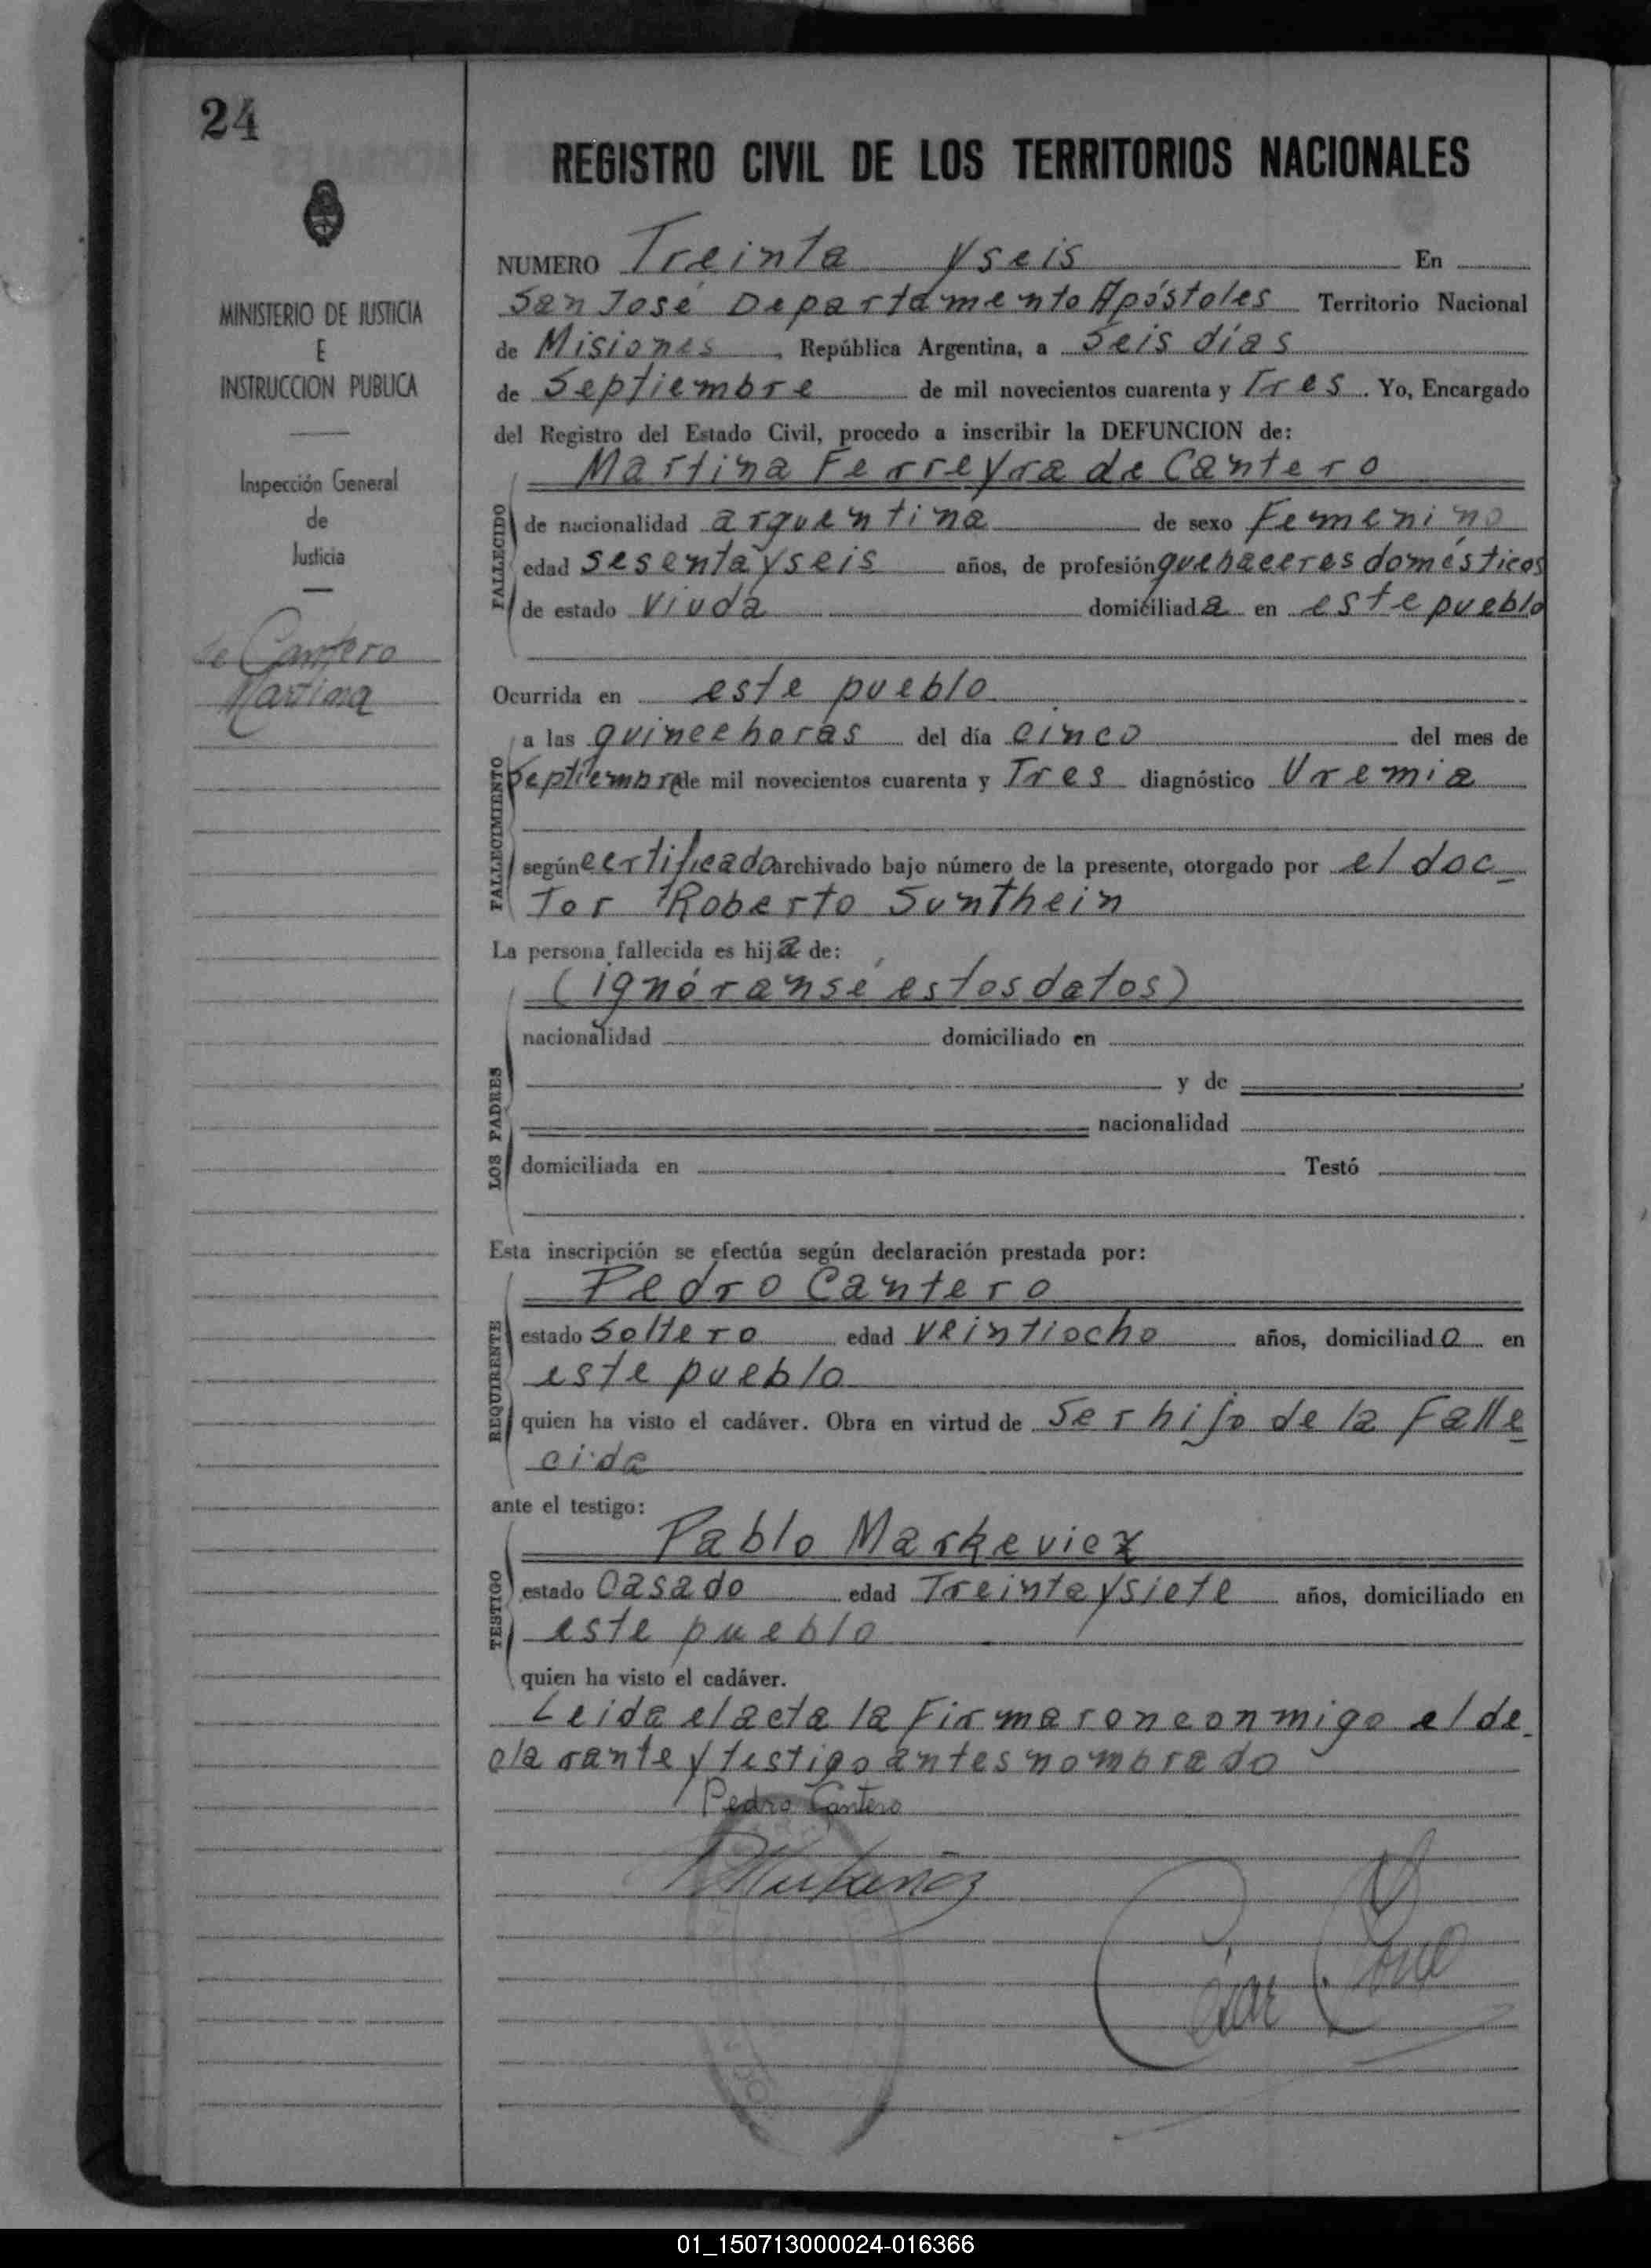 24
MINISTERIO DE JUSTICIA
E
INSTRUCCION PUBLICA
Inspección General
de
Justicia
de Cantero
Martina
REGISTRO CIVIL DE LOS TERRITORIOS NACIONALES
NUMERO Treinta y seis En
San José Departamento Apóstoles Territorio Nacional
de Misiones, República Argentina, a Seis días
de Septiembre de mil novecientos cuarenta y Tres. Yo, Encargado
del Registro del Estado Civil, procedo a inscribir la DEFUNCION de:
Martina Ferreyra de Cantero
FALLECIDO
de nacionalidad arguentina de sexo Femenino
edad sesenta y seis años, de profesión quehaceres domésticos
de estado viuda domiciliada en este pueblo
Ocurrida en este pueblo
FALLECIMIENTO
a las quince horas del día cinco del mes de
Septiembre de mil novecientos cuarenta y Tres diagnóstico Uremia
según certificado archivado bajo número de la presente, otorgado por el doc-
tor Roberto Sunthein
La persona fallecida es hija de:
(ignóranse estos datos)
LOS PADRES
nacionalidad domiciliado en
y de
nacionalidad
domiciliada en Testó
Esta inscripción se efectúa según declaración prestada por:
Pedro Cantero
REQUIRENTE
estado Soltero edad veintiocho años, domiciliado en
este pueblo
quien ha visto el cadáver. Obra en virtud de Ser hijo de la falle
cida
ante el testigo:
Pablo Markeviez
TESTIGO
estado Casado edad Treinta y siete años, domiciliado en
este pueblo
quien ha visto el cadáver.
Leida el acta la firmaron conmigo el de-
clarante y testigo antes nombrado
Pedro Cantero
01_150713000024-016366